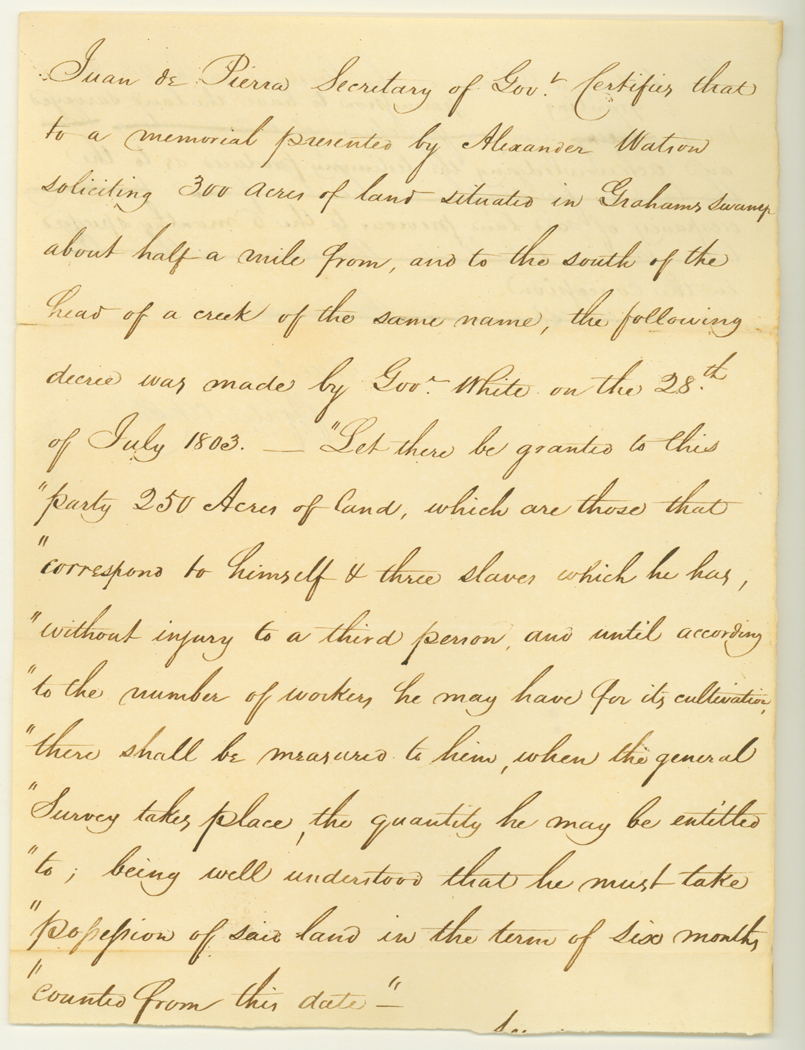 Juan de Pierra Secretary of Govt. Certifies that
to a memorial presented by Alexander Watson
soliciting 300 acres of land situated in Grahams swamp
about half a mile from, and to the south of the
head of a creek of the same name, the following
decree was made by Govr. White on the 28.th
of July 1803. — "Let there be granted to this
"party 250 Acres of land, which are those that
"correspond to himself & three slaves which he has,
"without injury to a third person, and until according
"to the number of workers he may have for its cultivation,
"there shall be measured to him, when the general
"Survey takes place, the quantity he may be entitled
"to; being well understood that he must take
"possession of said land in the term of six months
"counted from this date" —